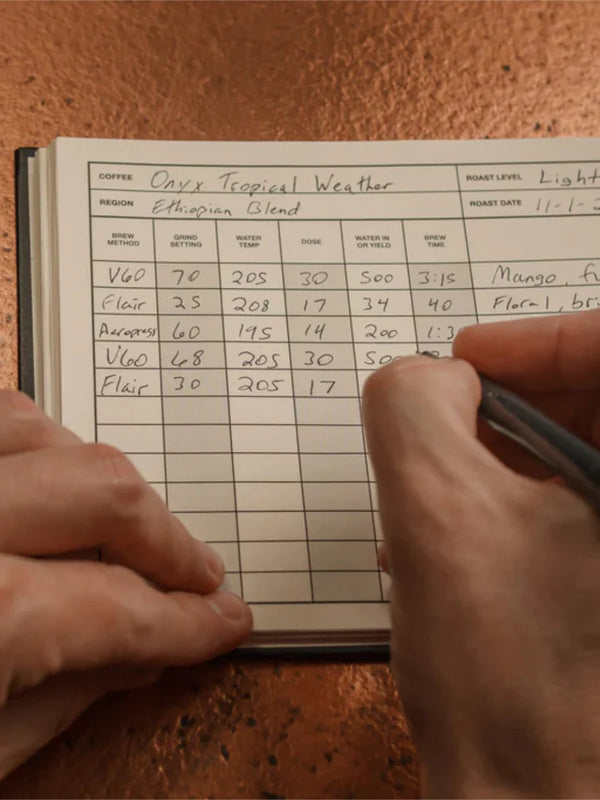 COFFEE Onyx Tropical Weather ROAST LEVEL Light
REGION Ethiopian Blend ROAST DATE 11-1-2
BREW METHOD GRIND SETTING WATER TEMP DOSE WATER IN OR YIELD BREW TIME
V60 70 205 30 500 3:15 Mango,
Flair 25 208 17 34 40 Floral,
Aeropress 60 195 14 200 1:3
V60 68 205 30 500
Flair 30 205 17